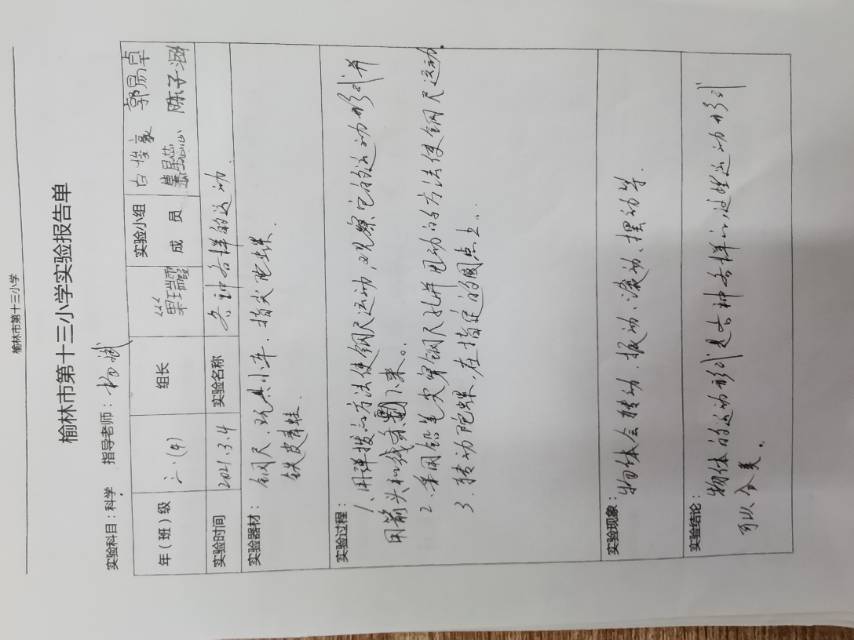 榆林市第十三小学
榆林市第十三小学实验报告单
实验科目：科学 指导老师：
年（班）级 三.(4) 组长 实验小组成员 白梓豪 郭易卓 陈子涵
实验时间 2021.3.4 实验名称 各种各样的运动
实验器材： 钢尺、玩具小车、指尖陀螺、
铁皮青蛙
实验过程：
1、用弹拨的方法使钢尺运动，观察它的运动形式并
用箭头和线条画下来。
2、用铅笔尖穿钢尺孔并甩动的方法使钢尺运动.
3、转动陀螺，在指定的圆点上。
实验现象： 物体会转动、振动、滚动、摆动等.
实验结论： 物体的运动形式是各种各样的这些运动形式
可以分类。